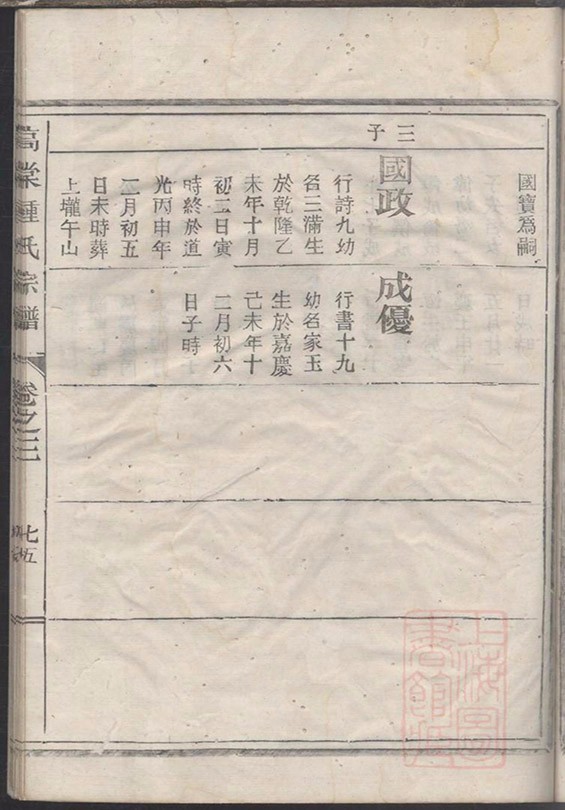 國寶爲嗣
三子
國政
行詩九幼
名三滿生
於乾隆乙
未年十月
初二日寅
時終於道
光丙申年
二月初五
日未時葬
上壠午山
成優
行書十九
幼名家玉
生於嘉慶
己未年十
二月初六
日子時
高棠鍾氏宗譜
卷之三
七五
上海圖書館